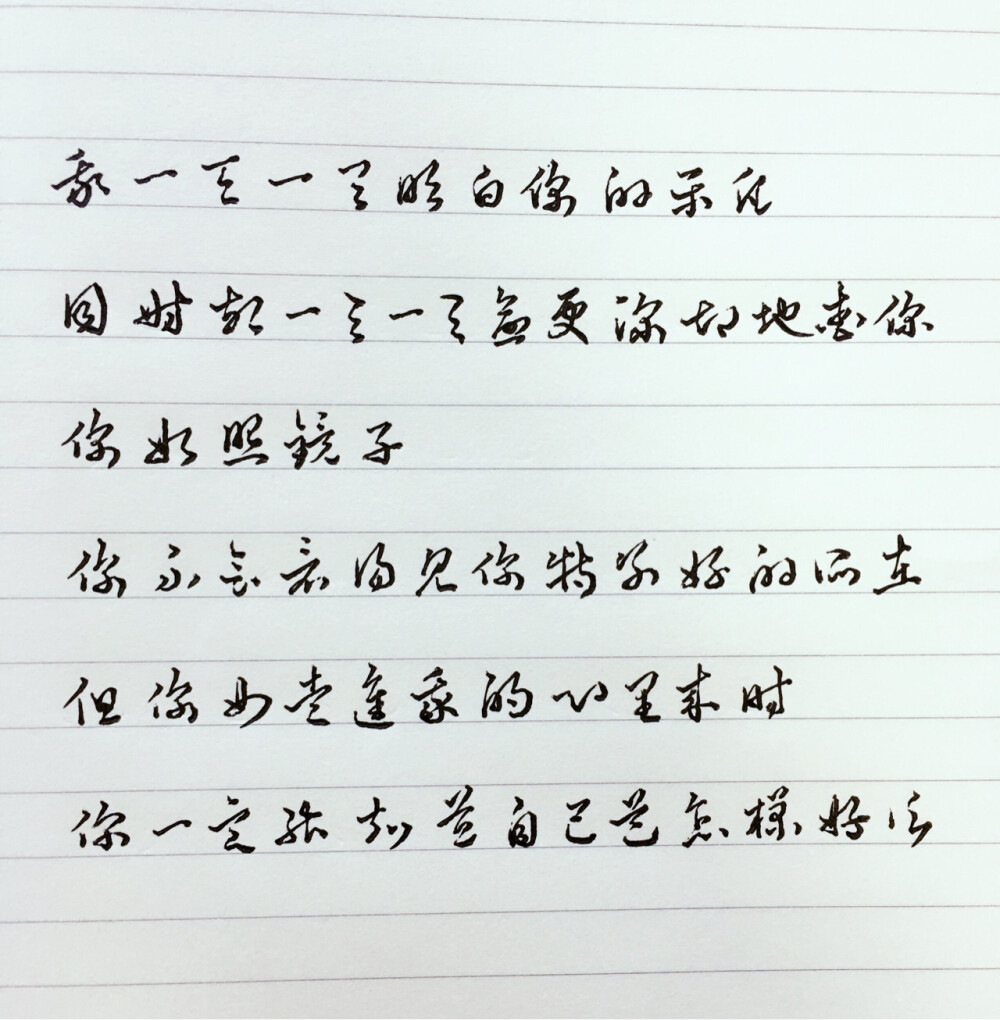 我一天一天明白你的平凡
同时却一天一天愈更深切地爱你
你如照鏡子
你不会看得见你特别好的所在
但你如走進我的心里来时
你一定能知道自己是怎样好法